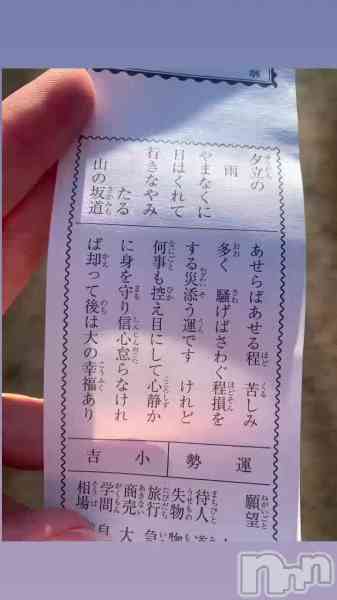 夕立の
雨
やまなくに
日はくれて
行きなやみ
たる
山の坂道
あせらばあせる程 苦しみ
多く 騒げばさわぐ程損を
する災添う運です けれど
何事も控え目にして心静か
に身を守り信心怠らなけれ
ば却って後は大の幸福あり
運勢
小吉
願望
待人
失物
旅行 急
商売 大
学問 自
相場